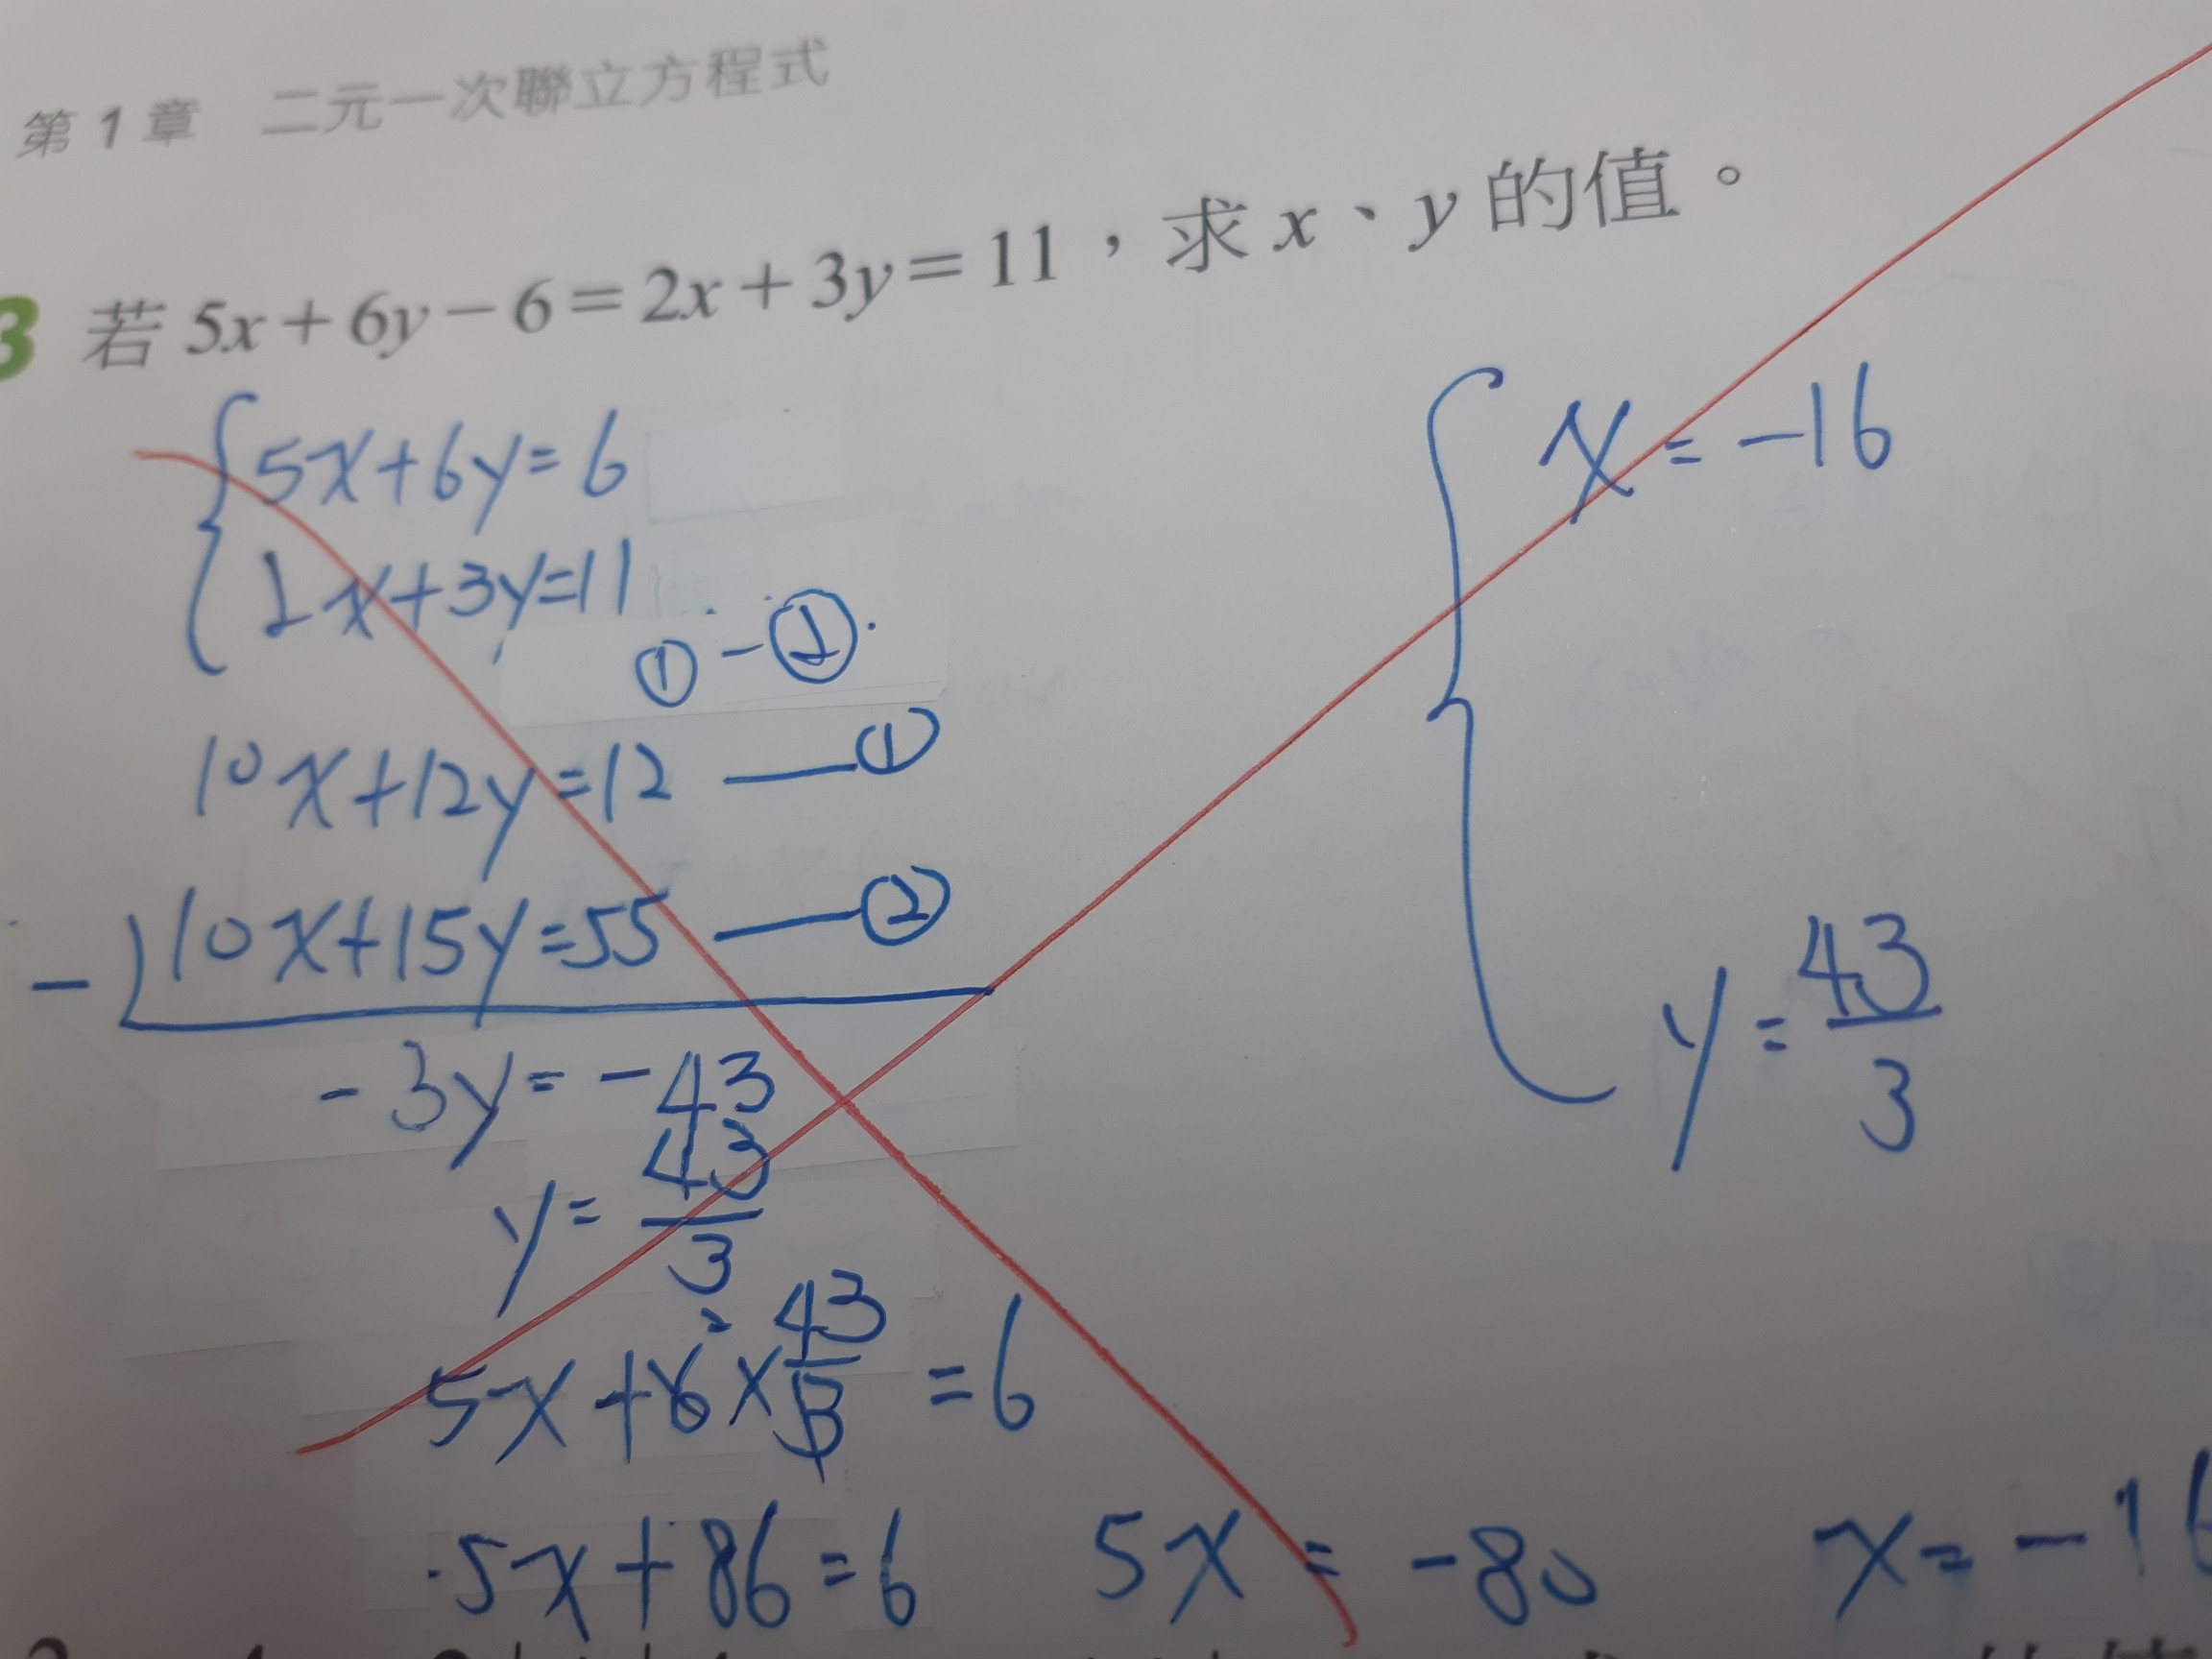 第1章 二元一次聯立方程式
3 若 5x+6y-6=2x+3y=11，求 x、y 的值。
5x+6y=6
2x+3y=11
①-②
10x+12y=12 ——①
- 10x+15y=55 ——②
-3y=-43
y=43/3
5x+6²×43/3=6
5x+86=6 5x=-80 x=-16
x=-16
y=43/3